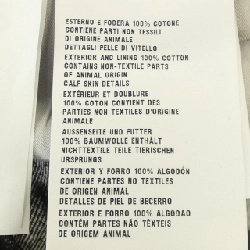 ESTERNO E FODERA 100% COTONE
CONTIENE PARTI NON TESSILI
DI ORIGINE ANIMALE
DETTAGLI PELLE DI VITELLO
EXTERIOR AND LINING 100% COTTON
CONTAINS NON-TEXTILE PARTS
OF ANIMAL ORIGIN
CALF SKIN DETAILS
EXTÉRIEUR ET DOUBLURE
100% COTON CONTIENT DES
PARTIES NON TEXTILES D'ORIGINE
ANIMALE
AUSSENSEITE UND FUTTER
100% BAUMWOLLE ENTHÄLT
NICHTTEXTILE TEILE TIERISCHEN
URSPRUNGS
EXTERIOR Y FORRO 100% ALGODÓN
CONTIENE PARTES NO TEXTILES
DE ORIGEN ANIMAL
DETALLES DE PIEL DE BECERRO
EXTERIOR E FORRO 100% ALGODAO
CONTÉM PARTES NÃO TÊXTEIS
DE ORIGEM ANIMAL